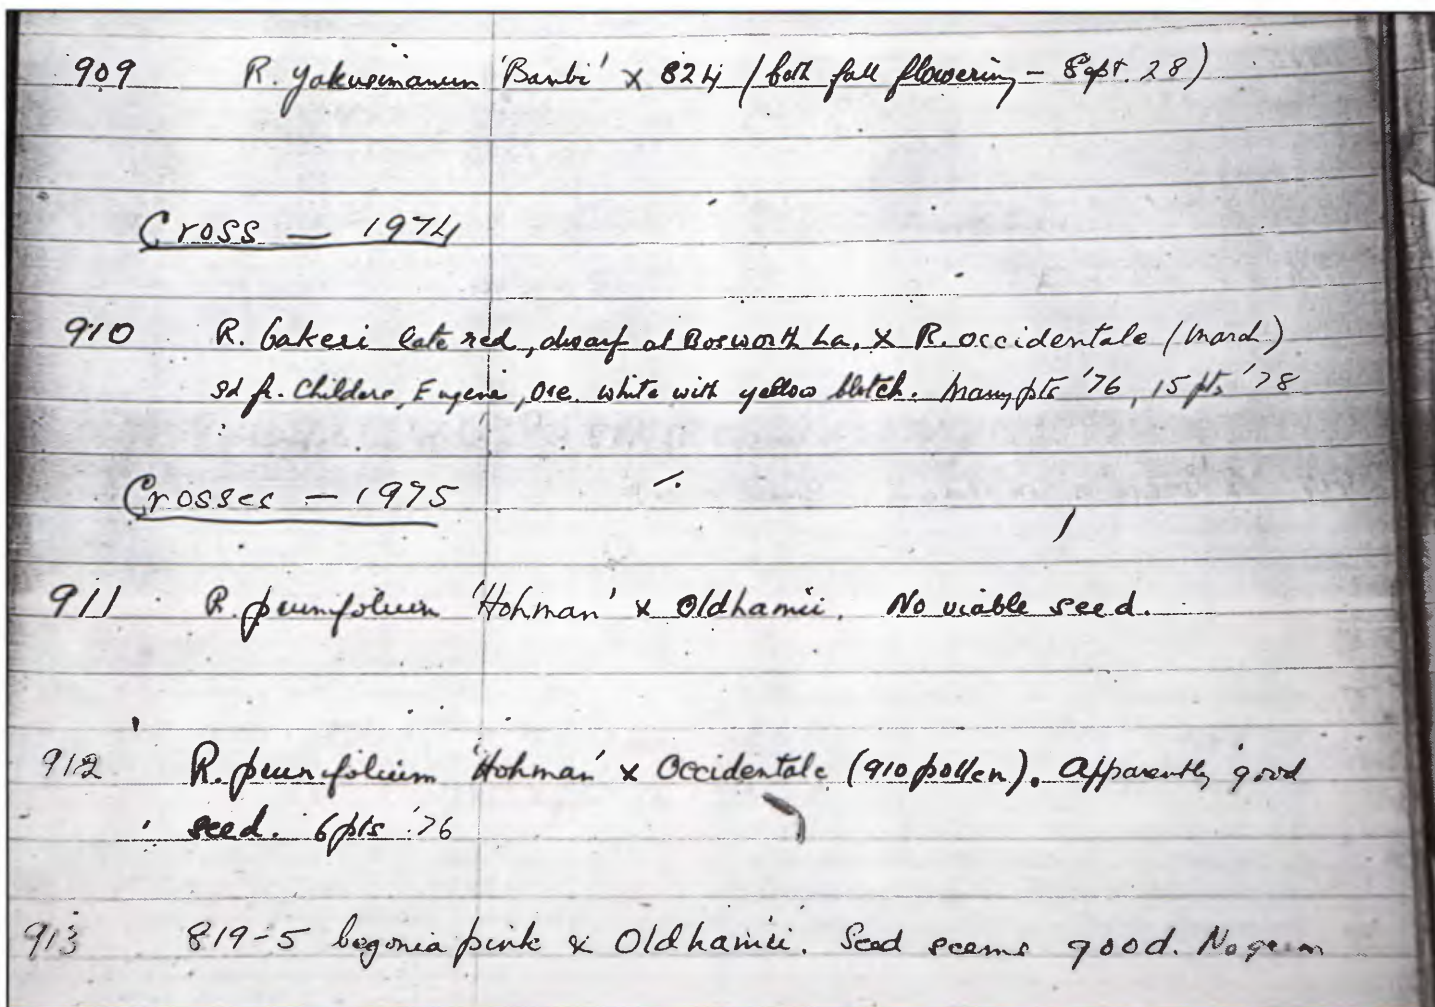 909 R. yakusimanum 'Bambi' x 824 (both fall flowering – Sept. 28)
Cross – 1974
910 R. bakeri late red, dwarf at Bosworth La. x R. occidentale (March)
sd fr. Childers, Eugene, Ore. white with yellow blotch. Many pts '76, 15 pts '78
Crosses – 1975
911 R. prunifolium 'Hohman' x Oldhamii. No viable seed.
912 R. prunifolium 'Hohman' x Occidentale (910 pollen). Apparently good
seed. 6 pts '76
913 819-5 begonia pink x Oldhamii. Seed seems good. No germ